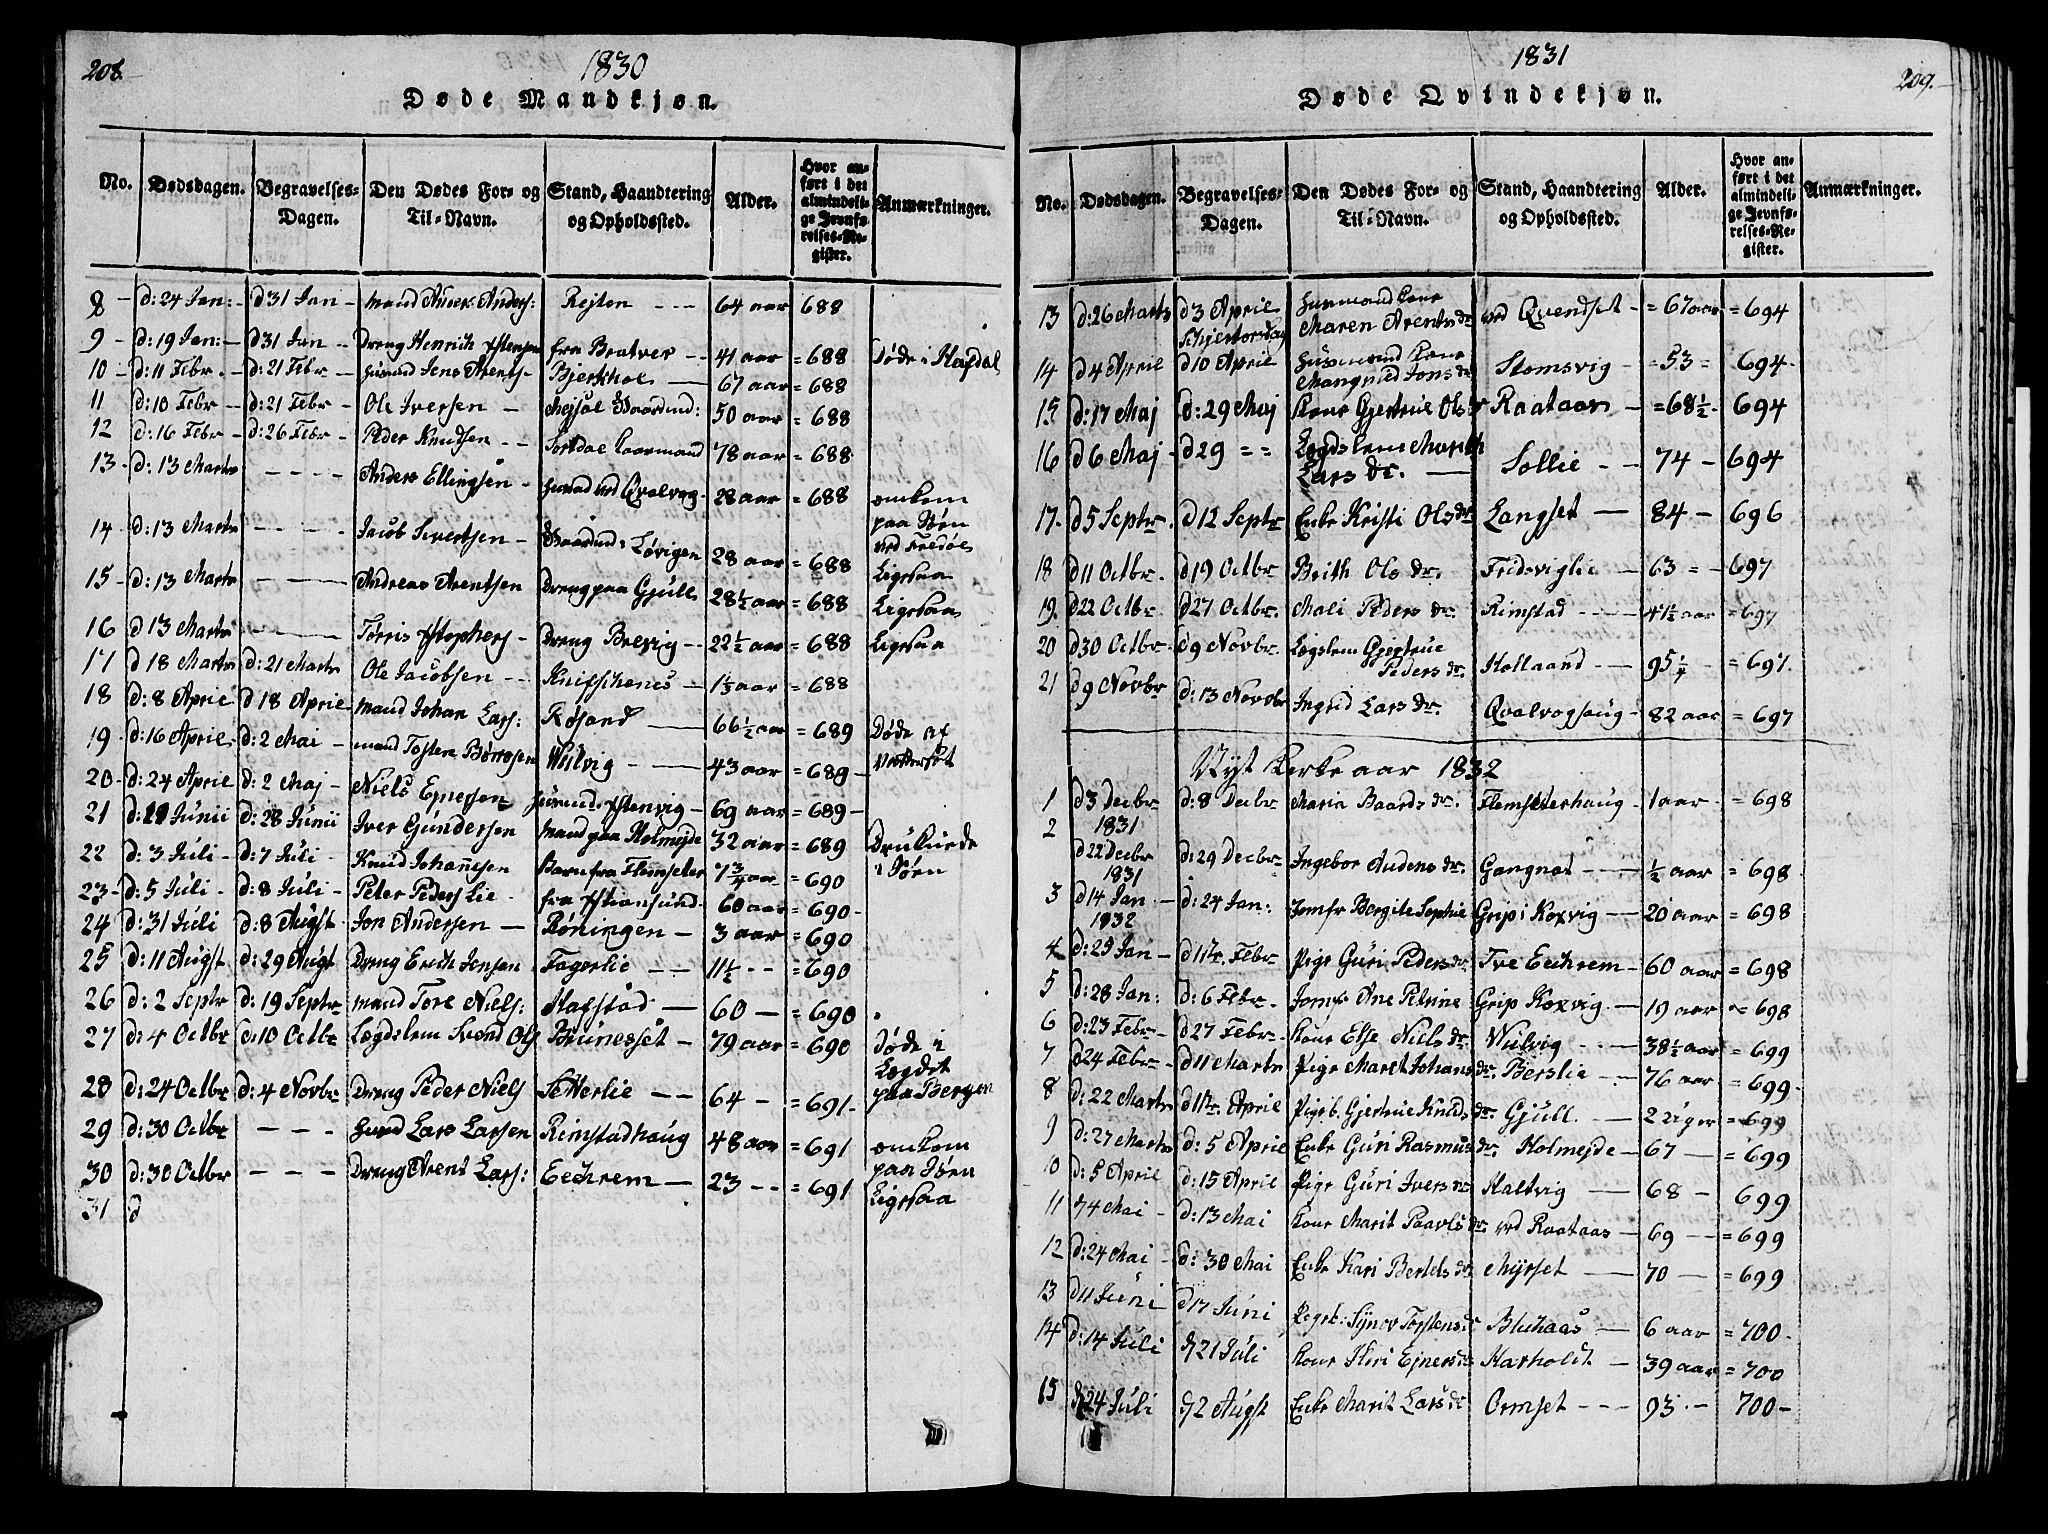 208.
1830
Døde Mandkjøn.
No. Dødsdagen. Begravelses-Dagen. Den Dødes For- og Til-Navn. Stand, Haandtering og Opholdssted. Alder. Hvor anført i det almindelige Jevnførelses-Register. Anmærkninger.
8 - d: 24 Jan: - d 31 Jan - Mand Anders: Rejten - - - 64 aar 688
9 - d: 19 Jan: - d 31 Jan - Dreng Henrich fra Bratvær - - 41 aar = 688 Døde i Hafdal
10 - d: 11 Febr - d: 21 Febr - Jens Arents - 67 aar = 688
11 d: 10 Febr - d: 21 Febr - Ole Iversen - 50 aar = 688
12 d: 16 Febr - d: 26 Febr - Peder Knudsen - - 78 aar = 688
13 - d: 13 Marts - - - - Anders Ellingsen - ved Qvalvog - 28 aar = 688 omkom paa Søen
14 - d: 13 Marts - - - - Jacob Sivertsen - Løvigen 28 aar = 688 ved Fredøe Ligesaa
15 - d: 13 Marts - - - Andreas Arentsen Dreng paa Gjull 28 1/2 aar = 688 Ligesaa
16 d 13 Marts - - - - Dreng Brevig - - 22 1/2 aar = 688 Ligesaa
17 d 18 Marts d: 21 Marts Ole Jacobsen - - - 1 1/3 aar = 688
18 d: 8 Aprie d 18 Aprie - Mand Johan Lars: Røsand - 66 1/2 aar = 689 Døde af
19 - d: 16 Aprie - d: 2 Mai - Mand Tosten - 43 aar = 689 - Vattersot
20 - d: 24 Aprie d: 2 Maj - Niels Ejnersen 69 aar = 689 -
21 d: Junii d: 28 Junii Iver Gundersen Mand paa Holmejde 32 aar = 689 Druknede i Søen
22 d: 3 Juli - d: 7 Juli - Knud Johannesen Barn fra Flemseter 7 3/4 aar = 690
23 - d: 5 Juli - d: 8 Juli - Peter Peders Lie fra Xstiansund - 60 aar = 690 -
24 d: 31 Juli d: 8 Augst - Jon Andersen - Røningen - 3 aar = 690
25 d: 11 Augst d: 29 Augt Dreng Erich Jonsen Fagerlie - - 11 1/2 - - = 690
26 d: 2 Septr d: 19 Septr - Mand Tore Niels: Hafstad - 60 - = 690
27 d: 4 Octbr d: 10 Octbr Lægdslem Svend Ols Brunesset - 79 aar = 690 Døde i Lægdet
28 d: 24 Octbr d: 4 Novbr Dreng Peder Niels Setterlie - - 64 - = 691 - paa Bergen
29 d: 30 Octbr - - - Lars Larsen Rimstadhaug 48 aar = 691 omkom paa Søen
30 d: 30 Octbr - - - Dreng Arent Lars: Eechrem - 23 - - = 691 Ligesaa
31 d
1831
209.
Døde Qvindekjøn.
No. Dødsdagen. Begravelses-Dagen. Den Dødes For- og Til-Navn. Stand, Haandtering og Opholdssted. Alder. Hvor anført i det almindelige Jevnførelses-Register. Anmærkninger.
13 d: 26 Marts d 3 Aprie Husmand Kone Maren Arents dr. ved Qvendset - = 67 aar = 694
14 d 4 Aprie d 10 Aprie Husmand Kone Jons dr Stomsvig - = 53 = 694 -
15 d: 17 Maj d: 29 Maj Kone Gjertrue Ols dr Raataas - = 68 1/2 - 694
16 d 6 Maj - d 29 = = Lægdslem Marith Lars dr. - Sollie - - 74 - 694
17 - d 5 Septr - d 12 Septr Enke Kristi Ols dr Langset - 84 - 696
18 d 11 Octbr - d 19 Octbr Brith Ols dr. Fredsviglie - 63 = - 697
19. d 22 Octbr - d 27 Octbr. Mali Peders dr. Rimstad - - - 4 1/2 aar = 697
20 d 30 Octbr - d 9 Novbr. Lægslem Gjertrue Peders dr. Hollaand - - 95 1/4 = 697.
21 d 9 Novbr d: 13 Novbr Ingrid Lars dr. Qvalvoghaug - 82 aar = 697
Nyt Kirke aar 1832
1 d 3 Decbr 1831 d: 8 Decbr Maria Baards dr. Flemseterhaug - 1 aar - = 698
2 d 22 Decbr 1831 d: 29 Decbr Ingebor Audens dr. Gangnat - - - 1/2 aar = 698
3 d 14 Jan 1832 - d: 24 Jan: Jomfr Bergite Sophie Grip i Koxvig - 20 aar = 698
4 d: 25 Jan - d 11te Febr Pige Guri Peders dr Tve Eechrem - 60 aar = 698
5 d: 28 Jan: d: 6 Febr - Jomfr Ane Petrine Grip Koxvig - 19 aar = 698
6 d: 23 Febr - d 27 Febr - Kone Else Niels dr - 38 1/2 aar = 699
7 d 24 Febr - d 11 Marts Pige Maret Johans dr. Berslie - - 76 aar = 699 -
8 d: 22 Marts d 1te Aprie Pigeb. Gjertrue Knuds dr. Gjull. - - 2 Uger = 699
9 d: 27 Marts d: 5 Aprie Enke Guri Rasmus dr. Holmejde - 67 - = 699
10 d: 5 Aprie d: 15 Aprie Pige Guri Ivers dr Kaltvig - 68 - 699
11 Mai - d: 13 Mai Kone Marit Paavls dr ved Raataas - 69 - - = 699
12 d: 24 Mai - d: 30 Mai Enke Kari Bertels dr Myrset - 70 - = 699
13 d 11 Juni d 17 Juni Pigeb: Synov Tostens dr Bluhaas - 6 aar = 700 -
14 d: 14 Juli d 21 Juli Kone Ejners dr Karholdt - 39 aar = 700
15 d 24 Juli d 2 Augst Enke Marit Lars dr Ormset - - - 93. - 700 -